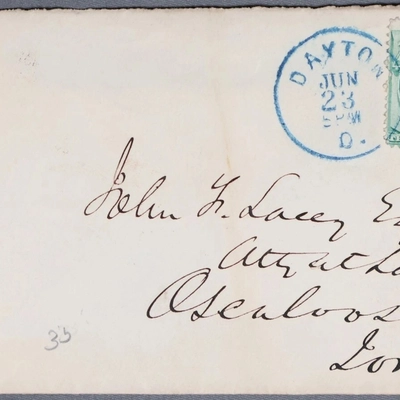 DAYTON
JUN
23
5 PM
O.
John F. Lacey Es
Atty at La
Oscaloos
Iow
35